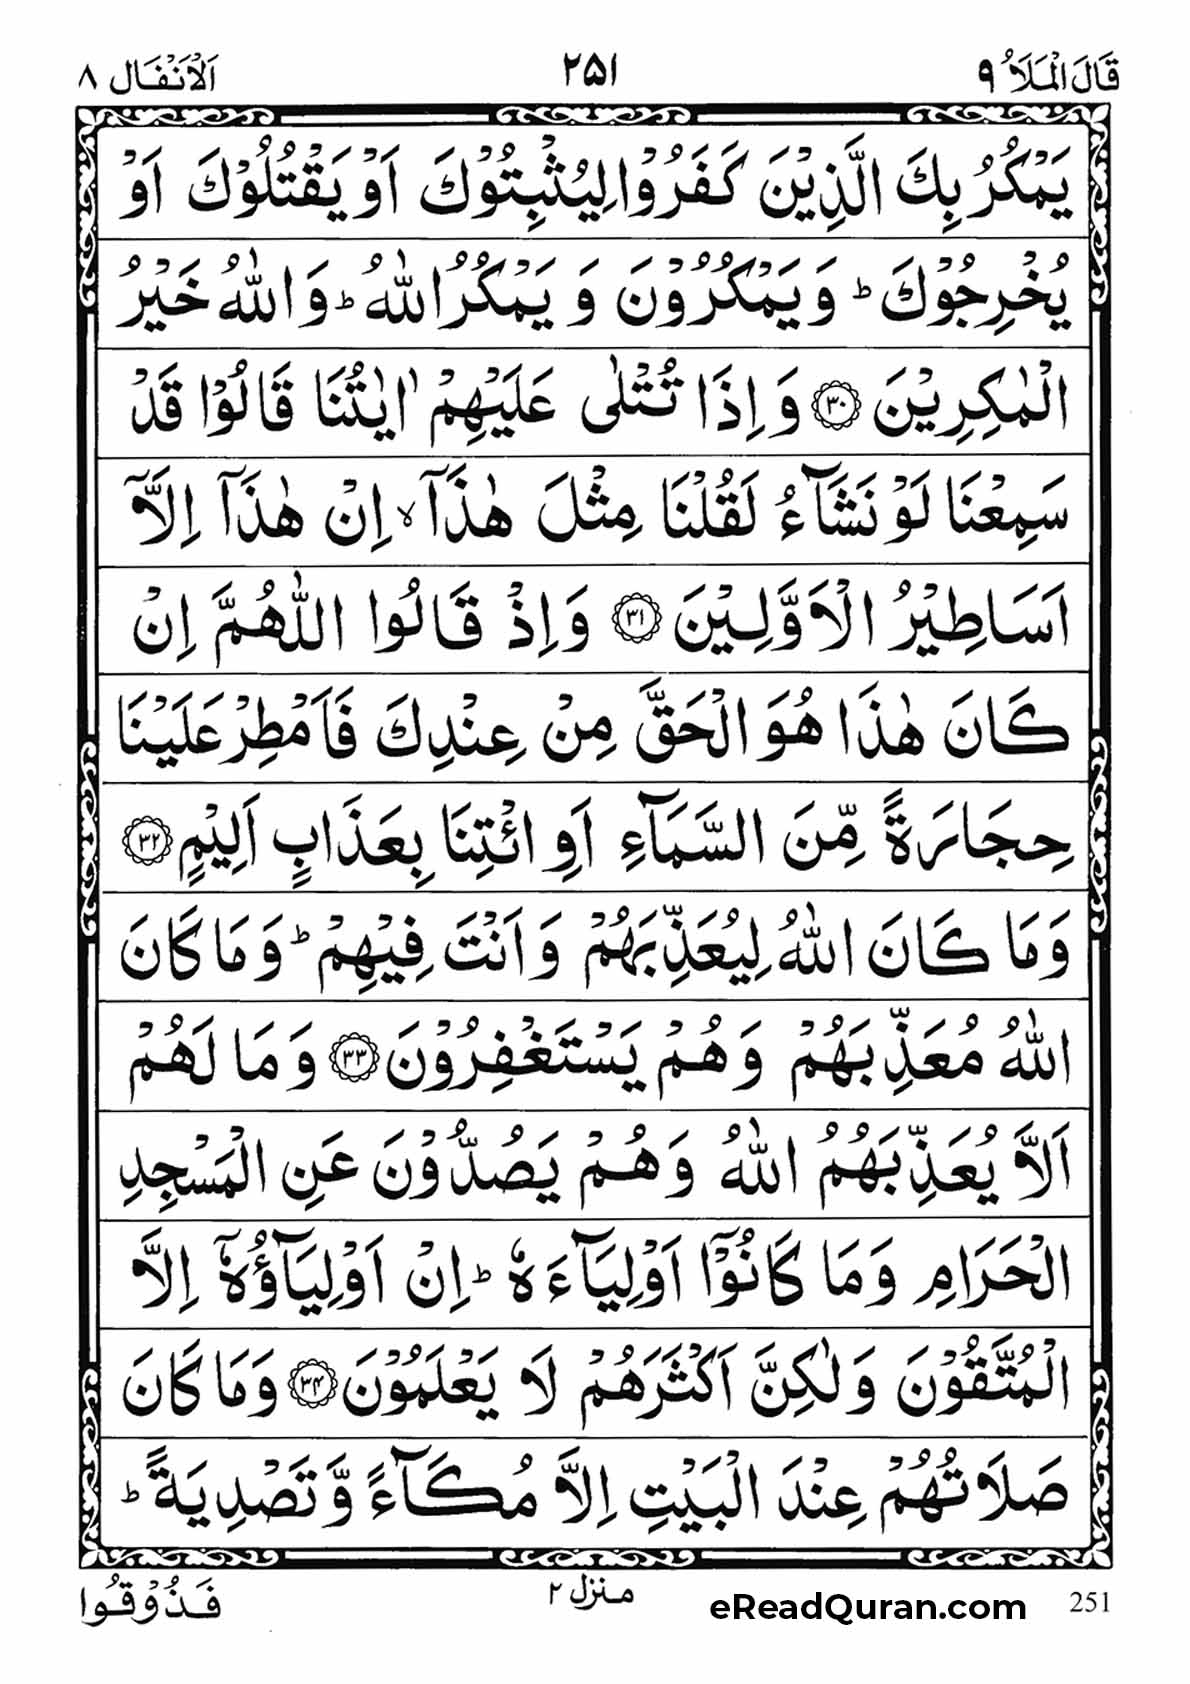 قَالَ الْمَلَاُ ٩ ٢٥١ اَلْاَنْفَال ٨
يَمْكُرُ بِكَ الَّذِيْنَ كَفَرُوْا لِيُثْبِتُوْكَ اَوْ يَقْتُلُوْكَ اَوْ
يُخْرِجُوْكَ ؕ وَ يَمْكُرُوْنَ وَ يَمْكُرُ اللّٰهُ ؕ وَ اللّٰهُ خَيْرُ
الْمٰكِرِيْنَ ﴿۳۰﴾ وَ اِذَا تُتْلٰى عَلَيْهِمْ اٰيٰتُنَا قَالُوْا قَدْ
سَمِعْنَا لَوْ نَشَآءُ لَقُلْنَا مِثْلَ هٰذَاۤ ۙ اِنْ هٰذَاۤ اِلَّاۤ
اَسَاطِيْرُ الْاَوَّلِيْنَ ﴿۳۱﴾ وَ اِذْ قَالُوا اللّٰهُمَّ اِنْ
كَانَ هٰذَا هُوَ الْحَقَّ مِنْ عِنْدِكَ فَاَمْطِرْ عَلَيْنَا
حِجَارَةً مِّنَ السَّمَآءِ اَوِ ائْتِنَا بِعَذَابٍ اَلِيْمٍ ﴿۳۲﴾
وَ مَا كَانَ اللّٰهُ لِيُعَذِّبَهُمْ وَ اَنْتَ فِيْهِمْ ؕ وَ مَا كَانَ
اللّٰهُ مُعَذِّبَهُمْ وَ هُمْ يَسْتَغْفِرُوْنَ ﴿۳۳﴾ وَ مَا لَهُمْ
اَلَّا يُعَذِّبَهُمُ اللّٰهُ وَ هُمْ يَصُدُّوْنَ عَنِ الْمَسْجِدِ
الْحَرَامِ وَ مَا كَانُوْۤا اَوْلِيَآءَهٗ ؕ اِنْ اَوْلِيَآؤُهٗۤ اِلَّا
الْمُتَّقُوْنَ وَ لٰكِنَّ اَكْثَرَهُمْ لَا يَعْلَمُوْنَ ﴿۳۴﴾ وَ مَا كَانَ
صَلَاتُهُمْ عِنْدَ الْبَيْتِ اِلَّا مُكَآءً وَّ تَصْدِيَةً ؕ
251 eReadQuran.com منزل ۲ فَذُوْقُوا